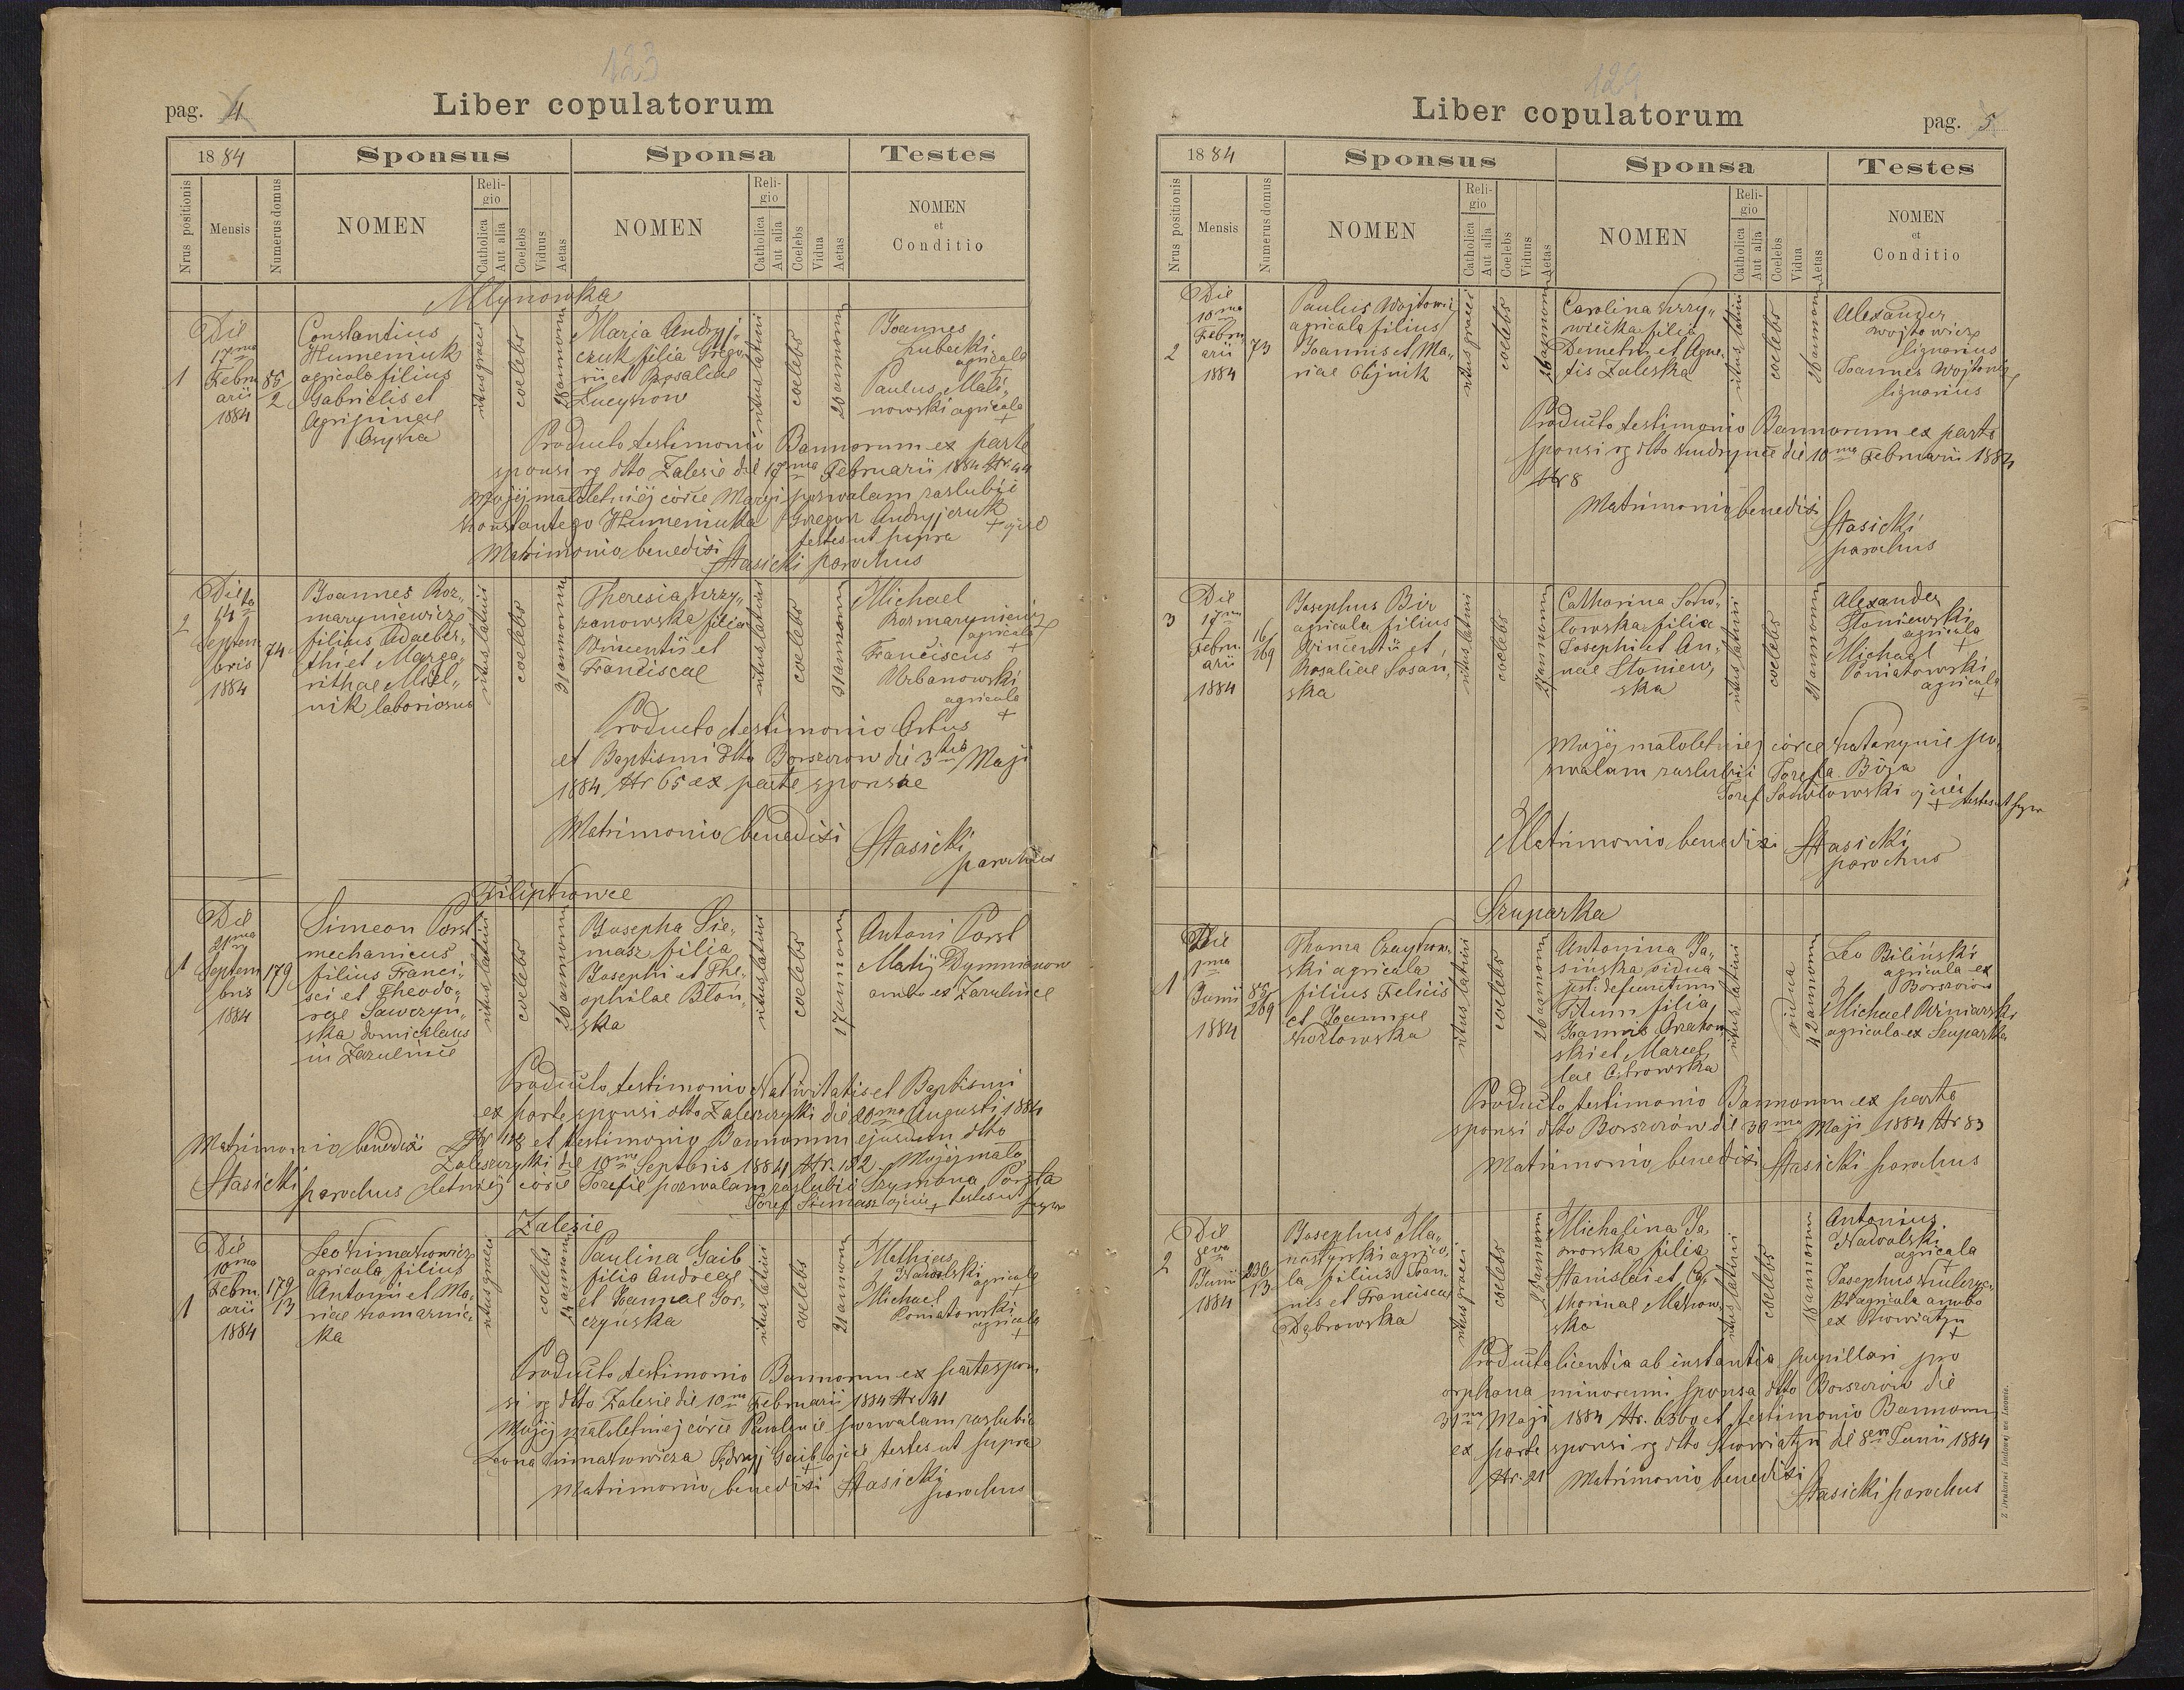 123
pag. 4
Liber copulatorum
1884
Sponsus
Sponsa
Testes
Nrus positionis
Mensis
Numerus domus
NOMEN
Religio
Catholica
Aut alia
Coelebs
Viduus
Aetas
NOMEN
Religio
Catholica
Aut alia
Coelebs
Vidua
Aetas
NOMEN
et
Conditio
Mlynowka
1
Die
17ma
Febru
arii
1884
85
2
Constantius
Humeniuk
agricola filius
Gabrielis et
Agripinae
ritus graeci
coelebs
28 annorum
Maria Andryj„
czuk filia Grego„
rii et Rosaliae
ritus latini
coelebs
20 annorum
Joannes
Lubecki
agricola
Paulus Mali„
nowski agricola
+
Producto testimonio Bannorum ex parte
sponsi rg dtto Zalesie die 17ma Februarii 1884 Nr 44
Mojej małoletniej córce Maryi pozwalam zaslubić
Konstantego Humeniuka Gregor Andryjczuk
+ ojciec
testes ut supra
Matrimonio benedixi
Stasicki parochus
2
Die
14ta
Septem
bris
1884
74
Joannes Roz„
maryniewicz
filius Adalber„
thi et Marga„
rithae Miel„
nik laboriosus
ritus latini
coelebs
31 annorum
Theresia Krzy„
zanowska filia
Vincentii et
Franciscae
ritus latini
coelebs
31 annorum
Michael
Rozmaryniewicz
agricola
+
Franciscus
Urbanowski
agricola
+
Producto testimonio Ortus
et Baptismi dtto Borszczow die 3tia Maji
1884 Nr 65 ex parte sponsae
Matrimonio benedixi
Stasicki
parochus
Filipkowce
1
Die
21ma
Septem
bris
1884
179
Simeon Porst
mechanicus
filius Franci„
sci et Theodo„
rae Sawczyn„
ska domicilans
in Zazulińce
ritus latini
coelebs
26 annorum
Josepha Sie„
masz filia
Josephi et The„
ophilae Błoń„
ska
ritus latini
coelebs
17 annorum
Antoni Porst
Matij Dymmanow
ambo ex Zazulince
Producto testimonio Nativitatis et Baptismi
ex parte sponsi dtto Zaleszczyki die 20ma Augusti 1884
Nr 128 et testimonio Bannorum ejusdem dtto
Zaleszczyki die 10ma Septbris 1884 Nr. 132. Mojej mało
letniej córce Jozefie pozwalam zaslubić Szymona Porsta
Jozef Siemasz ojciec + testes ut supra
Matrimonio benedixi
Stasicki parochus
Zalesie
1
Die
10ma
Febru
arii
1884
179
13
Leo Kimakowicz
agricola filius
Antonii et Ma„
riae Komarnic„
ka
ritus graeci
coelebs
24 annorum
Paulina Gaib
filia Andreae
et Joannae Gor„
czyńska
ritus latini
coelebs
21 annorum
Mathias
Nawolski
agricola
+
Michael
Poniatowski
agricola
+
Producto testimonio Bannorum ex parte spon
si rg dtto Zalesie die 10ma Februarii 1884 Nr 41
Mojej małoletniej córce Paulinie pozwalam zaslubić
Leona Kimakowicza Jędrzej Gaib ojciec testes ut supra
+
Matrimonio benedixi Stasicki
parochus
124
Liber copulatorum
pag. 5
1884
Sponsus
Sponsa
Testes
Nrus positionis
Mensis
Numerus domus
NOMEN
Religio
Catholica
Aut alia
Coelebs
Viduus
Aetas
NOMEN
Religio
Catholica
Aut alia
Coelebs
Vidua
Aetas
NOMEN
et
Conditio
2
Die
10ma
Febru
arii
1884
73
Paulus Wojtowicz
agricola filius
Joannis et Ma„
riae Olijnik
ritus graeci
coelebs
26 annorum
Carolina Krzy„
wiecka filia
Demetrii et Agne„
tis Zaleska
ritus latini
coelebs
26 annorum
Alexander
Wojtowicz
lignarius
Joannes Wojtowicz
lignarius
Producto testimonio Bannorum ex parte
sponsi rg dtto Kudrynce die 10ma Februarii 1884
Nr 8
Matrimonio benedixi
Stasicki
parochus
3
Die
17ma
Febru
arii
1884
16
269
Josephus Bir
agricola filius
Vincentii et
Rosaliae Sosań„
ska
ritus latini
coelebs
27 annorum
Catharina Soko„
lowska filia
Josephi et An„
nae Słoniew„
ska
ritus latini
coelebs
21 annorum
Alexander
Słoniewski
agricola
+
Michael
Poniatowski
agricola
+
Mojej małoletniej córce Katarzynie po„
zwalam zaslubić Jozefa Bira
Jozef Sokołowski ojciec
+ testes ut supra
Matrimonio benedixi Stasicki
parochus
Szuparka
1
Die
1ma
Junii
1884
85
269
Thoma Czaykow„
ski agricola
filius Felicis
et Joannae
Kozłowska
ritus latini
coelebs
26 annorum
Antonina Ja„
sińska vidua
post defunctum
Titum filia
ritus latini
vidua
42 annorum
Leo Biliński
agricola ex
Borszczow
Michael Winiarski
agricola ex Szuparka
Producto testimonio Bannorum ex parte
sponsi dtto Borszczów die 30ma Maji 1884 Nr 83
Matrimonio benedixi Stasicki parochus
2
Die
8va
Junii
1884
230
13
Josephus Ma„
nastyrski agrico„
la filius Joan„
nis et Francisca
Dąbrowska
ritus graeci
coelebs
Michalina Ja„
worska filia
Stanislai et Ca„
tharinae Makow„
ska
ritus latini
coelebs
18 annorum
Antonius
Nawolski
agricola
+
Josephus Kulczyc„
ki agricola ambo
ex Skowiatyn
+
Producta licentia ab instantia pupillari pro
orphana minorenni sponsa dtto Borszczów die
31ma Maji 1884 Nr. 6360 et testimonio Bannorum
ex parte sponsi rg dtto Skowiatyn die 8va Junii 1884
Nr. 21 Matrimonio benedixi
Stasicki parochus
Z Drukarni Ludowej we Lwowie.